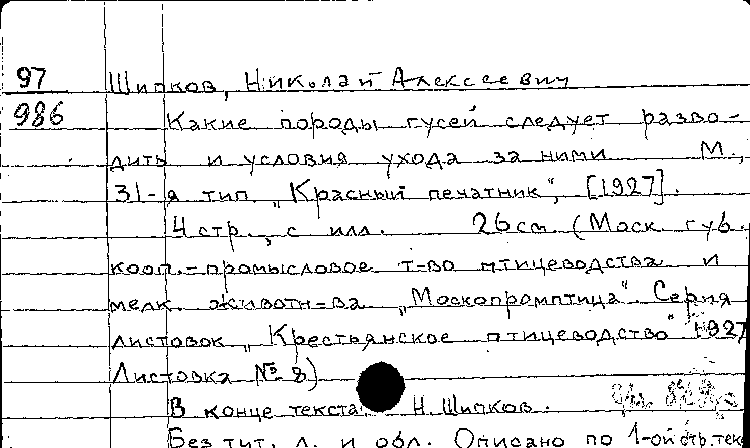 97 Шипков, Николай Алексеевич
986 Какие породы гусей следует разво-
дить и условия ухода за ними М.,
31-я тип. "Красный печатник", [1927].
4 стр., с илл. 26 см (Моск. губ.
кооп.-промысловое т-во птицеводства и
мелк. животн-ва "Москопромптица" Серия
листовок "Крестьянское птицеводство" 1927
Листовка № 8)
В конце текста: Н. Шипков.
Без тит. л. и обл. Описано по 1-ой стр. тек